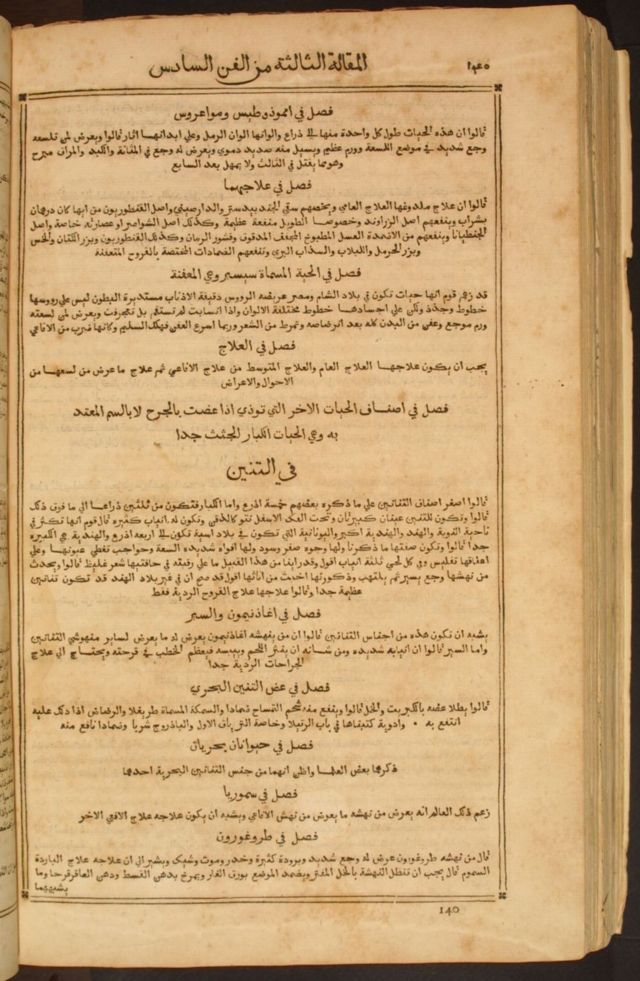 المقالة الثالثة من الفن السادس
١٤٠
فصل في اموذوطيس ومواعروس
قالوا ان هذه الحيات طول كل واحدة منها الي ذراع والوانها الوان الرمل وعلي ابدانها اثار قالوا ويعرض لمن تلسعه
وجع شديد في موضع اللسعة وورم عظيم ويسيل منه صديد دموي ويعرض له وجع في المثانة والكبد والمراق مبرح
وهو مما يقتل في الثالث ولا يمهل بعد السابع
فصل في علاجهما
قالوا ان علاج ملدوغها العلاج العامي ويخصهم سقي الجندبيدستر والدارصيني واصل القنطوريون من ايها كان درهمان
بشراب وينفعهم اصل الزراوند وخصوصا الطويل منفعة عظيمة وكذلك اصل الشواصر او عصارته خاصة واصل
الجنطيانا وينفعهم من الاضمدة العسل المطبوخ المجفف المدقوق وقشور الرمان وكذلك القنطوريون وبزر الكتان والخس
وبزر الحرمل واللبلاب والسذاب البري وتنفعهم الضمادات المختصة بالقروح المتعفنة
فصل في الحية المسماة سيسر وهي المعفنة
قد زعم قوم انها حيات تكون في بلاد الشام ومصر عريضة الرووس دقيقة الاذناب مستديرة البطون ليس علي رووسها
خطوط وجدد ولكن علي اجسادها خطوط مختلفة الالوان واذا انسابت لم تستقم بل تعجرفت ويعرض لمن لسعته
ورم موجع وعفن من البدن كله بعد انرضاضه وتمرط من الشعر وربما اسرع العفن فهلك السليم وكانها ضرب من الافاعي
فصل في العلاج
يجب ان يكون علاجها العلاج العام والعلاج المتوسط من علاج الافاعي ثم علاج ما عرض من لسعها من
الاحوال والاعراض
فصل في اصناف الحيات الاخر التي توذي اذا عضت بالجرح لا بالسم المعتد
به وهي الحيات الكبار الجثث جدا
في التنين
قالوا اصغر اصناف التنانين علي ما ذكره بعضهم خمسة اذرع واما الكبار فتكون من ثلثين ذراعا الي ما فوق ذلك
قالوا وتكون للتنين عينان كبيرتان وتحت الفك الاسفل نتو كالذقن وتكون له انياب كثيرة قال قوم انها تكثر في
ناحية النوبة والهند والهندية اكبر واليونانية التي تكون في بلاد اسية تكون الي اربعة اذرع والهندية هي الكبيرة
جدا قالوا وتكون صفتها ما ذكرنا ولها وجوه صفر وسود ولها افواه شديدة السعة وحواجب تغطي عيونها وعلي
اعناقها تفليس وفي كل لحي ثلثة انياب اقول وقد راينا من هذا القبيل ما علي رقبته في حافتيها شعر غليظ قالوا ويحدث
من نهشها وجع يسير ثم يلتهب وذكورتها اخبث من اناثها اقول قد صح ان في غير بلاد الهند قد تكون تنانين
عظيمة جدا وقالوا علاجها علاج القروح الردية فقط
فصل في اغاذنيمون والسير
يشبه ان تكون هذه من اجناس التنانين قالوا ان من ينهشه اغاذنيمون يعرض له ما يعرض لساير منهوشي التنانين
واما السير قالوا ان انيابه شديدة ومن شانه ان يفتر اللحم وييبسه فيعظم الخطب في قرحته ويحتاج الي علاج
الجراحات الردية جدا
فصل في عض التنين البحري
قالوا يطلا عضه بالكبريت والخل قالوا وينفع منه شحم التمساح ضمادا والسمكة المسماة طريغلا والرصاص اذا دلك عليه
انتفع به وادوية كتبناها في باب الرتيلا وخاصة الترياق الاول والباذروج شربا وضمادا نافع منه
فصل في حيوانات بحريات
ذكرها بعض العلما واظن انهما من جنس التنانين البحرية احدهما
فصل في سموريا
زعم ذلك العالم انه يعرض من نهشه ما يعرض من نهش الافاعي ويشبه ان يكون علاجه علاج الافعي الاخر
فصل في طروغورون
قال من نهشه طروغورون عرض له وجع شديد وبرودة كثيرة وخدر وموت وشيك ويشير الي ان علاجه علاج الباردة
السموم قال يجب ان تنطل النهشة بالخل المفتر ويضمد الموضع بورق الغار ويمرخ بدهن القسط ودهن العاقرقرحا وما
يشبههما
140